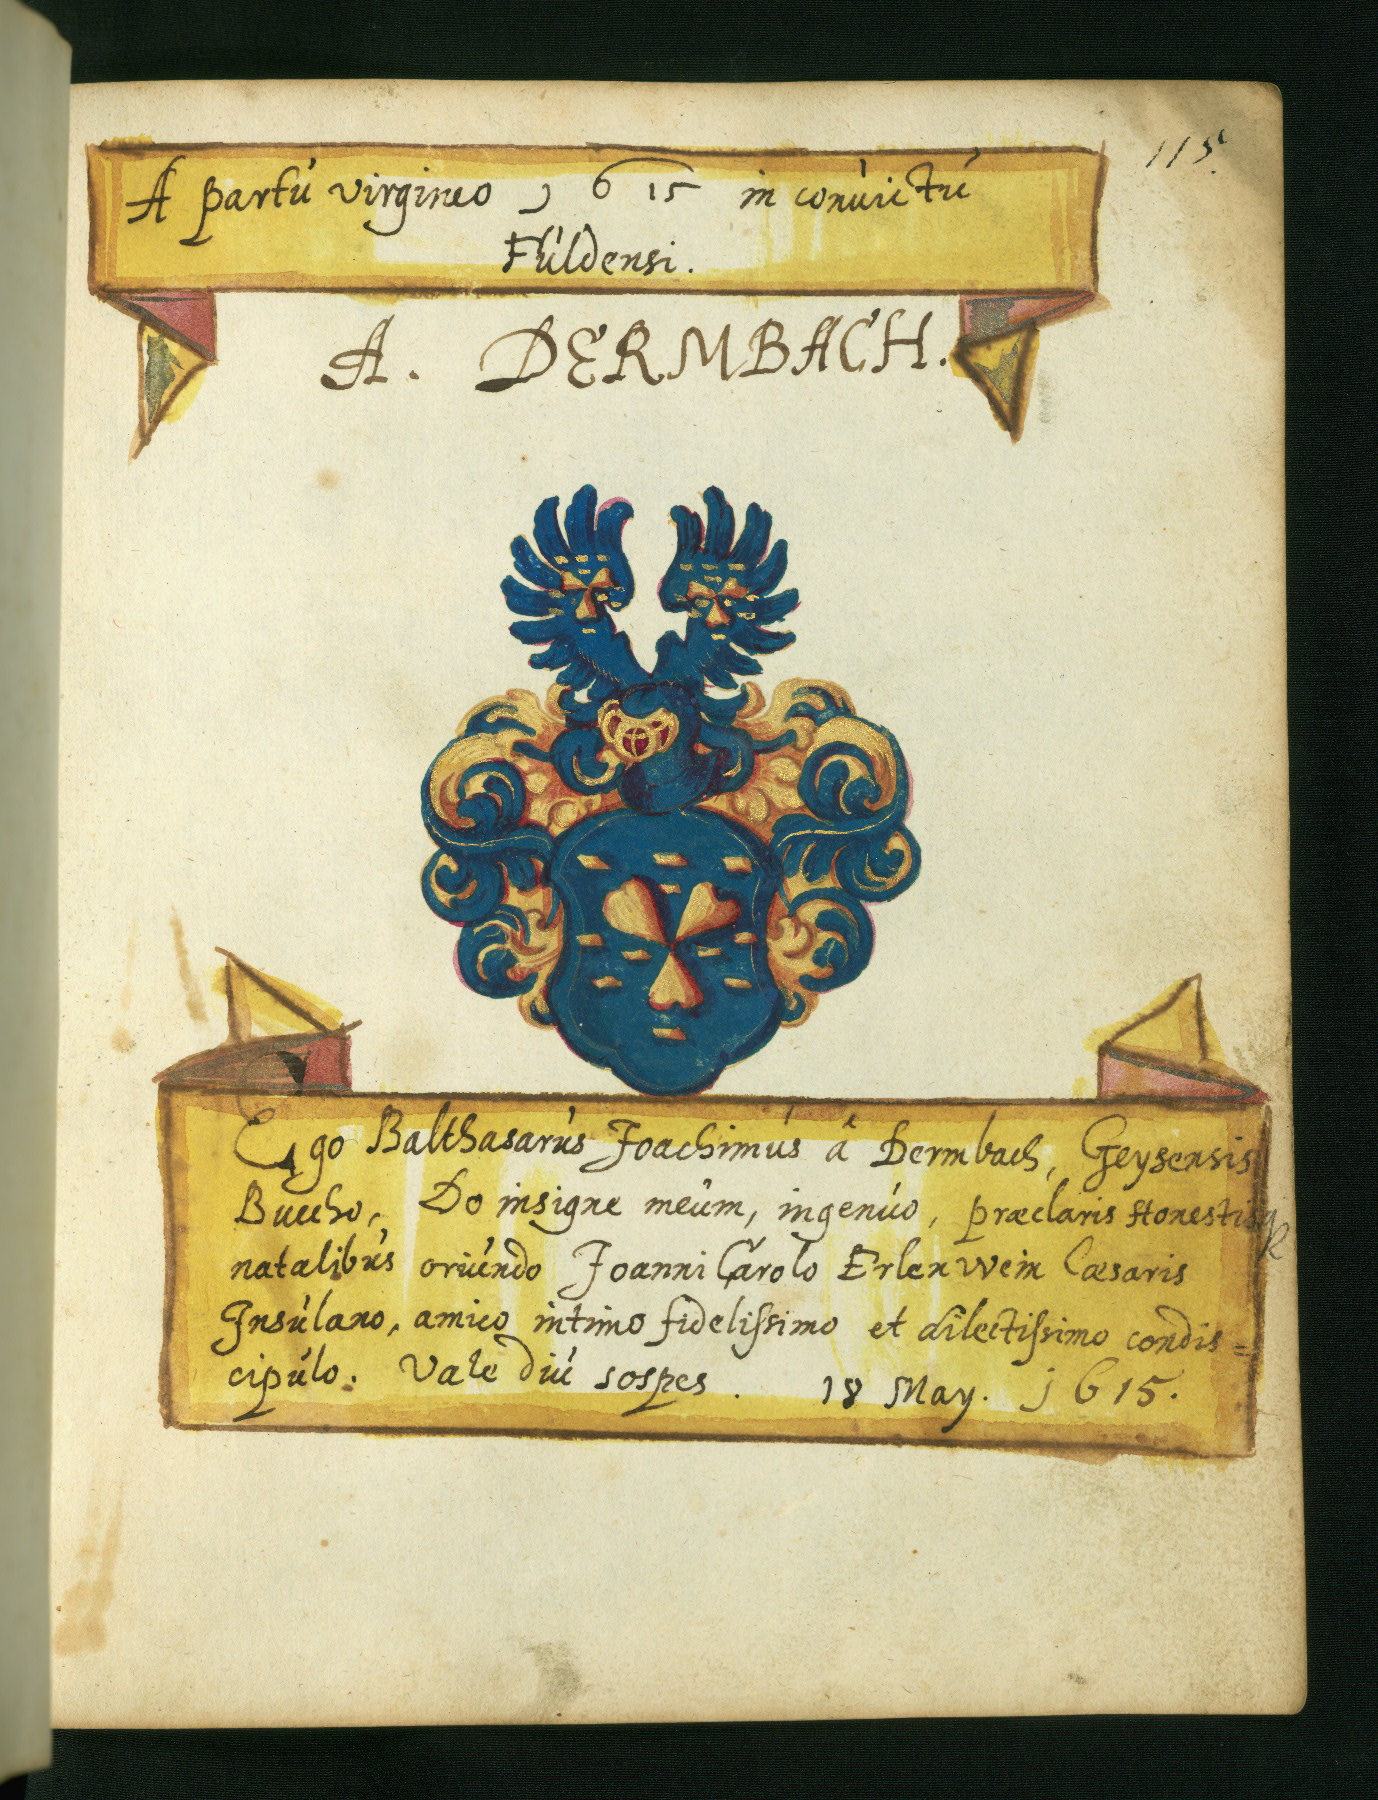 115.
A partu virgineo 1615 in convictu
Fuldensi.
A. DERMBACH.
Ego Balthasarus Joachimus â Dermbach, Geysensis
Buccho, Do insigne meum, ingenuo, præclaris Honestisq₃
natalibus oriundo Joanni Carolo Erlenwein Cæsaris
Insulano, amico intimo fidelissimo et dilectissimo condis=
cipulo. Vale diu sospes. 18 May. 1615.